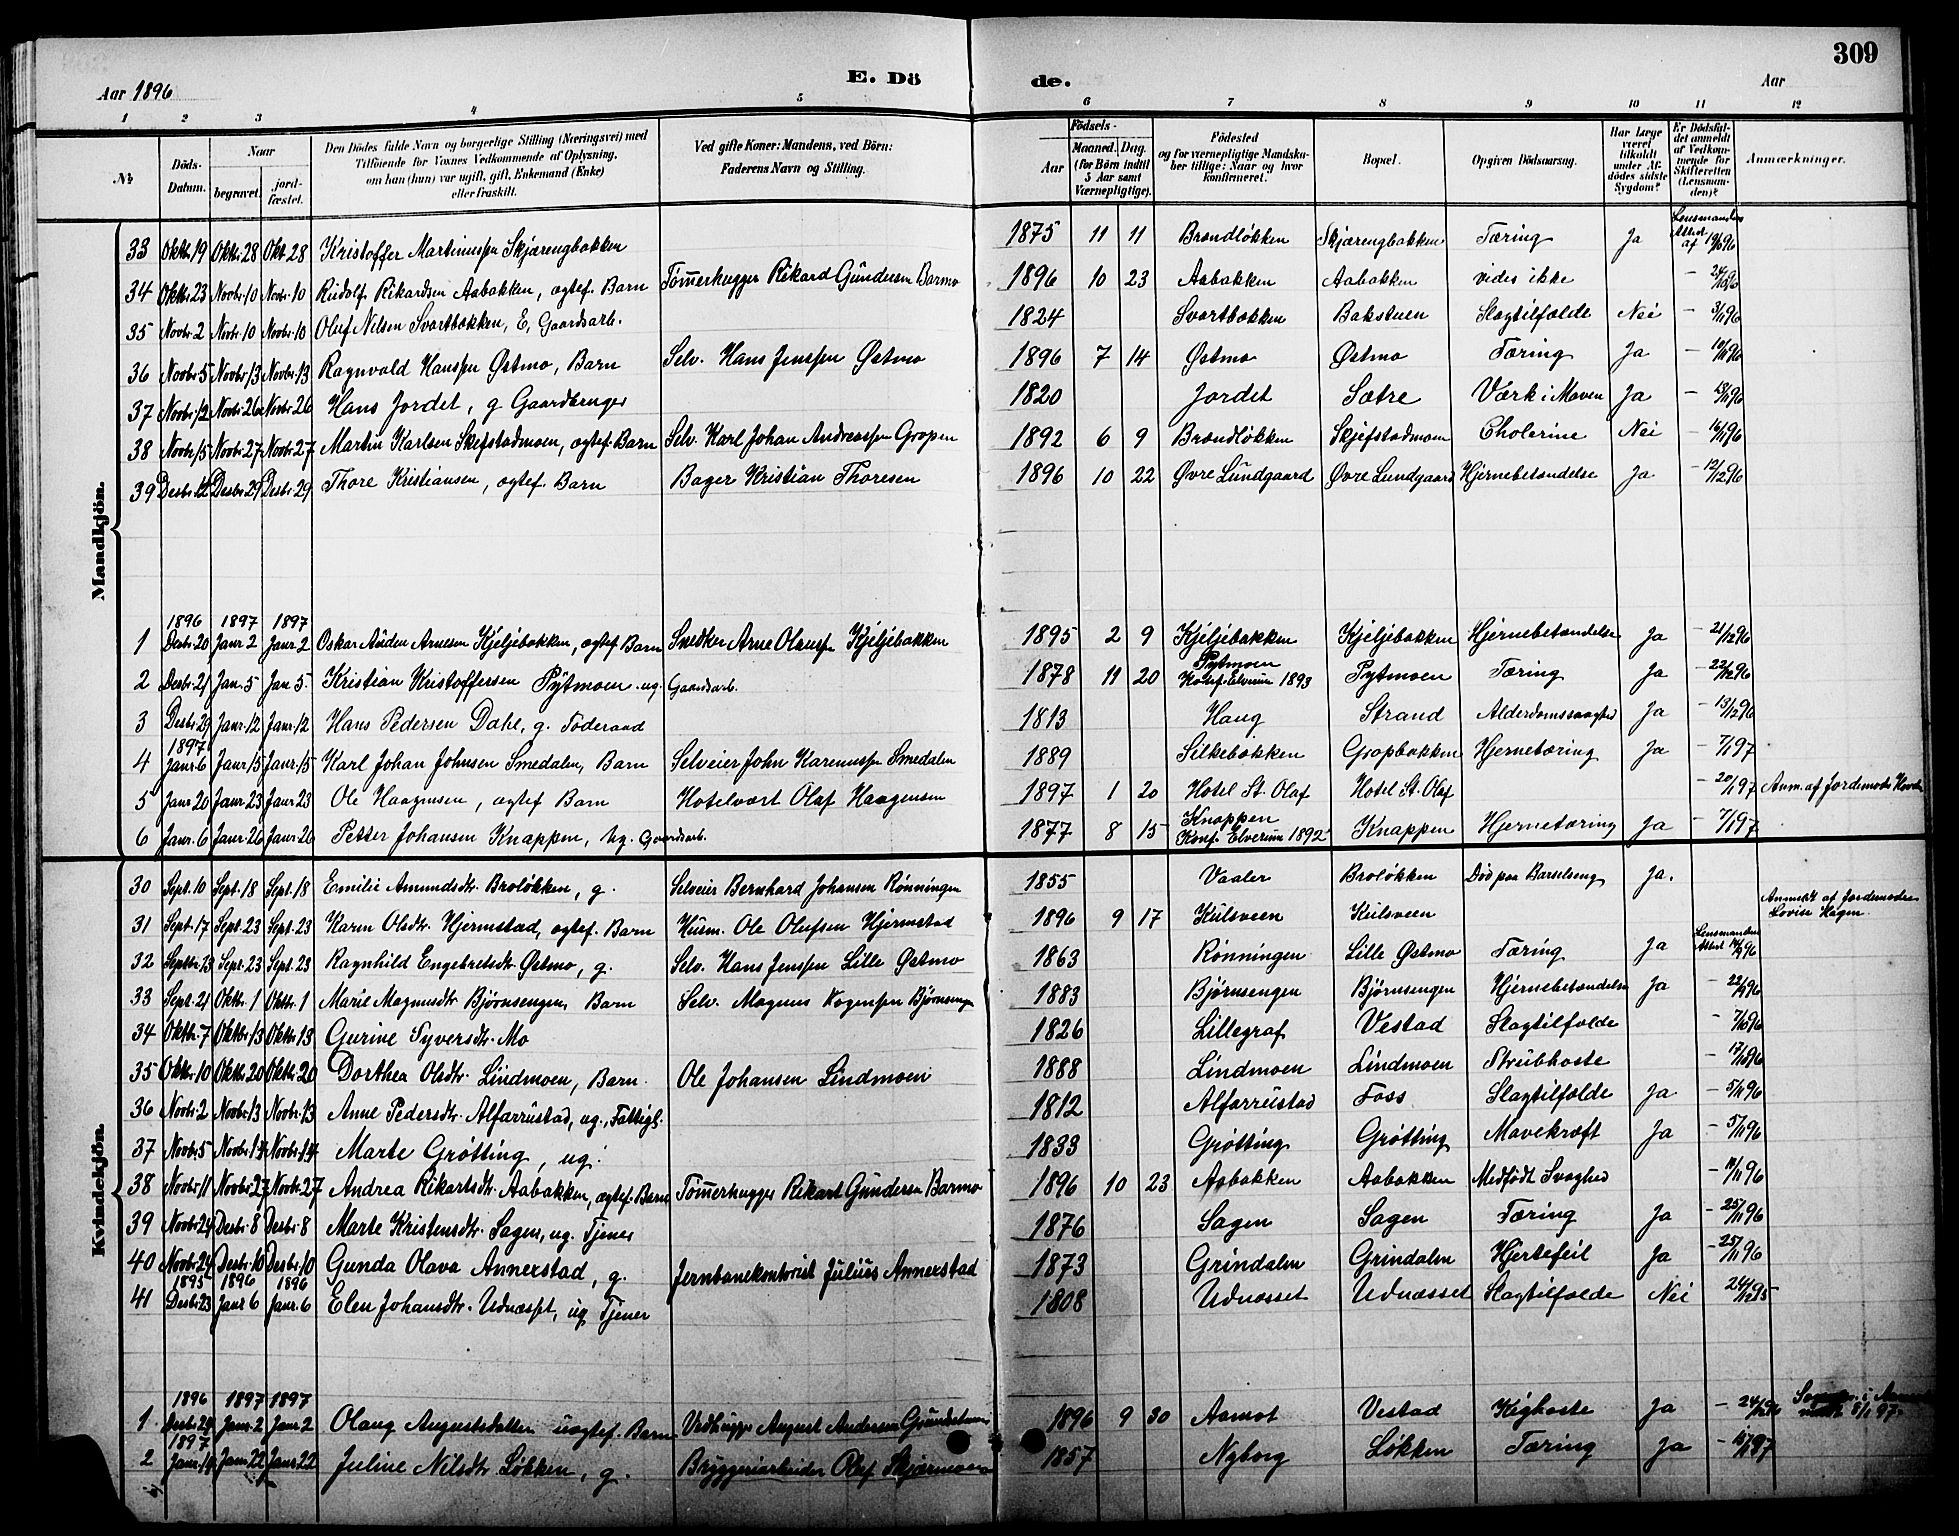 309
Aar 1896 E. Dö de. Aar
1 2 3 4 5 6 7 8 9 10 11 12
№ Döds-Datum. Naar begravet. jord-fæstet. Den Dödes fulde Navn og borgerlige Stilling (Næringsvei) med Tilföiende for Voxnes Vedkommende af Oplysning, om han (hun) var ugift, gift, Enkemand (Enke) eller fraskilt. Ved gifte Koner: Mandens, ved Börn: Faderens Navn og Stilling. Födsels- Aar Maaned. Dag. (for Börn indtil 5 Aar samt Værnepligtige). Födested og for værnepligtige Mandskaber tillige: Naar og hvor konfirmeret. Bopæl. Opgiven Dödsaarsag. Har Læge været tilkaldt under Afdödes sidste Sygdom? Er Dödsfaldet anmeldt af Vedkommende for Skifteretten (Lensmanden)? Anmærkninger.
Mandkjön.
33 Oktb. 19 Oktb. 28 Okt 28 Kristoffer Martinussen Skjærengbakken 1875 11 11 Brændløkken Skjærengbakken Tæring Ja Lensmandens Attest af 19/10 96
34 Oktb. 23 Novbr. 10 Novbr. 10 Rudolf Rikardsen Aabakken, ægtef. Barn Tømerhugger Rikard Gundersen Barmo 1896 10 23 Aabakken Aabakken vides ikke – 24/10 96
35 Novbr. 2 Novbr. 10 Novbr. 10 Oluf Nilsen Svartbækken, E, Gaardsarb. 1824 Svartbækken Bakstuen Slagtilfælde Nei – 3/11 96
36 Novbr. 5 Novbr. 13 Novbr. 13 Ragnvald Hanssen Østmo, Barn Selv. Hans Jenssen Østmo 1896 7 14 Østmo Østmo Tæring Ja – 10/11 96
37 Novbr. 12 Novbr. 26 Novbr. 26 Hans Jordet, g Gaardbruger 1820 Jordet Sætre Værk i Maven Ja – 13/11 96
38 Novbr. 15 Novbr. 27 Novbr. 27 Martin Karlsen Skefstadmoen, ægtef. Barn Selv. Karl Johan Andreassen Gropen 1892 6 9 Brændløkken Skjefstadmoen Cholerine Nei – 16/11 96
39 Desbr. 12 Desbr. 29 Desbr. 29 Thore Kristiansen, ægtef. Barn Bager Kristian Thoresen 1896 10 22 Øvre Lundgaard Øvre Lundgaard Hjernebetændelse Ja – 12/12 96
1896 1897 1897
1 Desbr. 20 Janr 2 Janr. 2 Oskar Anden Arnesen Kjeljebakken, ægtef. Barn Snedker Arne Olaussen Kjeljebakken 1895 2 9 Kjeljebakken Kjeljebakken Hjernebetændelse Ja – 21/12 96
2 Desbr. 21 Jan. 5 Jan 5. Kristian Kristoffersen Pytmoen ug. Gaardsarb. 1878 11 20 Pytmoen Konf. Elverum 1893 Pytmoen Tæring Ja – 22/12 96
3 Desbr. 29 Janr. 12 Janr. 12 Hans Pedersen Dahl, g. Foderaad 1813 Haug Strand Alderdomssvaghed Ja – 13/12 96
1897
4 Janr. 6 Janr. 15 Janr. 15 Karl Johan Johnsen Smedalen, Barn Selveier John Karenussen Smedalen 1889 Silkebækken Gropbakken Hjernetæring Ja – 7/1 97
5 Janr 20 Janr 23 Janr 23 Ole Haagensen, ægtef Barn Hotelvært Olaf Haagensen 1897 1 20 Hotel St. Olaf Hotel St. Olaf – 20/1 97 Anm. af Jordemoder
6 Janr. 6 Janr. 26 Janr. 26 Petter Johansen Knappen, ug. Gaardsarb. 1877 8 15 Knappen Konf. Elverum 1892 Knappen Hjernetæring Ja – 7/1 97
Kvindekjön.
30 Sept. 10 Sept. 18 Sept. 18 Emilie Amundsdtr. Broløkken, g. Selveier Bernhard Johansen Rønningen 1855 Vaaler Broløkken Død paa Barselseng Ja.
31 Sept. 17 Sept. 23 Sept. 23 Karen Olsdtr. Hjermstad, ægtef. Barn Husm. Ole Olufsen Hjermstad 1896 9 17 Kulsveen Kulsveen Anmeldt af Jordemoder Lovise Hagen.
32 Septbr. 13 Sept. 23 Sept. 23 Ragnhild Engebretsdtr. Østmo, g. Selv. Hans Jenssen Lille Østmo 1863 Rønningen Lille Østmo Tæring Ja Lensmandens Attest 14/9 96
33 Sept. 21 Oktbr. 1 Oktbr. 1 Marie Magnusdtr Bjørnsengen, Barn Selv. Magnus Bjørnsengen 1883 Bjørnsengen Bjørnsengen Hjernebetændelse Ja – 22/9 96
34 Oktbr. 7 Oktbr. 13 Oktbr 13 Gurine Syversdtr. Mo 1826 Lillegraf Vestad Slagtilfælde – 7/10 96
35 Oktbr. 10 Oktbr. 20 Oktbr 20 Dorthea Olsdtr. Lindmoen, Barn. Ole Johansen Lindmoen 1888 Lindmoen Lindmoen Strubhoste – 17/10 96
36 Novbr. 2 Novbr. 13 Novbr. 13 Anne Pedersdtr. Alfarrustad, ug., Fattigl. 1812 Alfarrustad Foss Slagtilfælde Ja – 5/11 96
37 Novbr. 5 Novbr. 14 Novbr. 14 Marte Grøtting, ug. 1833 Grøtting Grøtting Mavekræft Ja – 5/11 96
38 Novbr. 11 Novbr. 27 Novbr. 27 Andrea Rikartsdtr. Aabakken, ægtef. Barn Tømerhugger Rikart Gundersen Barmo 1896 10 23 Aabakken Aabakken Medfødt Svaghed – 14/11 96
39 Novbr. 24 Desbr. 8 Desbr. 8 Marte Kristensdtr. Sagen, ug. Tjener 1876 Sagen Sagen Tæring Ja – 25/11 96
40 Novbr. 24 Desbr. 10 Desbr. 10 Gunda Olava Annerstad, g. Jernbanekontorist Julius Annerstad 1873 Grindalen Grindalen Hjertefeil Ja – 25/11 96
1895 1896 1896
41 Desbr. 23 Janr 6 Janr. 6 Elen Johansdtr. Udnæsset, ug Tjener 1808 Udnæsset Udnæsset Slagtilfælde Nei 24/12 95
1896 1897 1897
1. Desbr. 24 Janr. 2 Janr 2 Olaug Augustsdatter uægtef. Barn Vedhugger August Andersen Grundstuen 1896 9 30 Aamot Vestad Kighoste Ja – 24/12 96
1897
2 Janr. 14 Janr. 22 Janr. 22 Juline Nilsdtr Løkken, g. Bryggeriarbeider Olaf Skjærmoen 1857 Nyborg Løkken Tæring Ja – 15/1 97